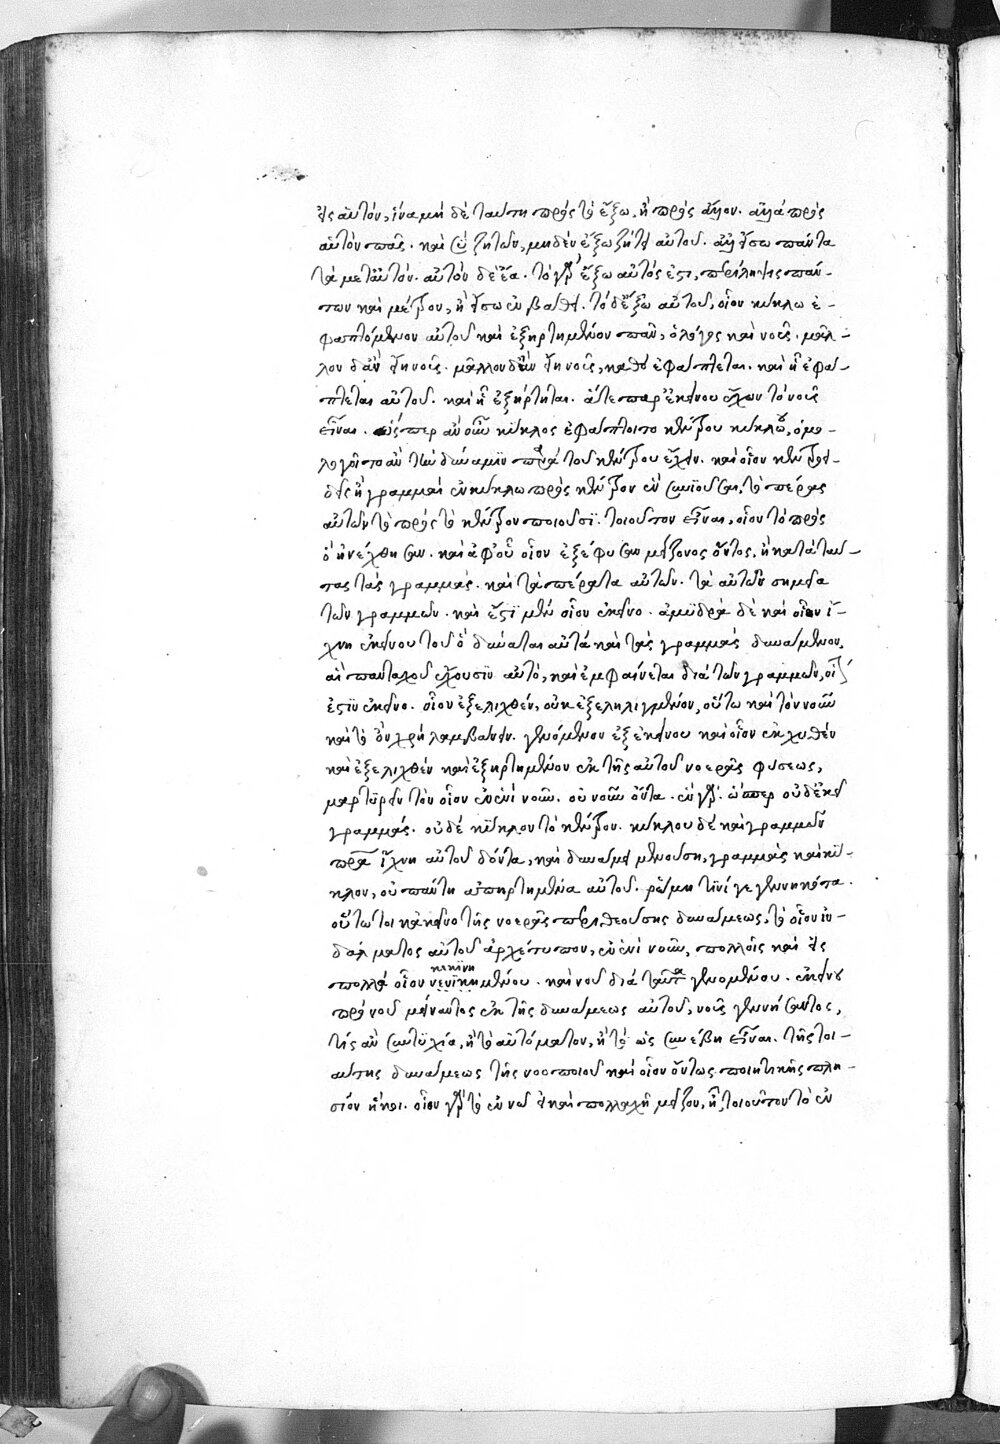 εἰς αὐτόν, ἵνα μὴ δὲ ταύτη πρὸς τὸ ἔξω, ἢ πρὸς ἄλλον. ἀλλὰ πρὸς
αὐτὸν πᾶς. καὶ σὺ ζητῶν, μηδὲν ἔξω ζήτει αὐτοῦ. ἀλλ' εἴσω πάντα
τὰ μετ' αὐτόν. αὐτὸν δὲ ἔα. τὸ γὰρ ἔξω αὐτός ἐστι, περίληψις πάν-
των καὶ μέτρον, ἢ εἴσω ἐν βάθει. τὸ δ' ἔξω αὐτοῦ, οἷον κύκλω ἐ-
φαπτόμενον αὐτοῦ καὶ ἐξηρτημένον πᾶν, ὁ λόγος καὶ νοῦς. μᾶλ-
λον δ' ἂν εἴη νοῦς. μᾶλλον δ' ἂν εἴη νοῦς, καθὸ ἐφάπτεται. καὶ ἢ ἐφά-
πτεται αὐτοῦ. καὶ ἢ ἐξήρτηται. ἅτε παρ' ἐκείνου ἔχων τὸ νοῦς
εἶναι. ὥσπερ ἂν οὖν κύκλος ἐφάπτοιτο κέντρου κύκλω, ὁμο-
λογοῖτο ἂν τὴν δύναμιν παρὰ τοῦ κέντρου ἔχειν. καὶ οἷον κεντροει-
δὴς ἢ γραμμαὶ ἐν κύκλω πρὸς κέντρον ἓν συνιοῦσαι, τὸ πέρας
αὐτῶν τὸ πρὸς τὸ κέντρον ποιοῦσι. τοιοῦτον εἶναι, οἷον τὸ πρὸς
ὃ ἠνέχθησαν. καὶ ἀφ' οὗ οἷον ἐξέφυσαν μείζονος ὄντος, ἢ κατὰ ταύ-
τας τὰς γραμμάς. καὶ τὰ πέρατα αὐτῶν. τὰ αὐτῶν σημεῖα
τῶν γραμμῶν. καὶ ἔστι μὲν οἷον ἐκεῖνο. ἀμυδρὰ δὲ καὶ οἷον ἴ-
χνη ἐκείνου τοῦ ὃ δύναται αὐτὰ καὶ τὰς γραμμὰς δυνάμενον,
αἳ πανταχοῦ ἔχουσιν αὐτό, καὶ ἐμφαίνεται διὰ τῶν γραμμῶν, οἷόν
ἐστιν ἐκεῖνο. οἷον ἐξελιχθέν, οὐκ ἐξεληλιγμένον, οὕτω καὶ τὸν νοῦν
καὶ τὸ ὂν χρὴ λαμβάνειν. γενόμενον ἐξ ἐκείνου καὶ οἷον ἐκχυθὲν
καὶ ἐξελιχθὲν καὶ ἐξηρτημένον ἐκ τῆς αὐτοῦ νοερᾶς φύσεως,
μαρτυρεῖν τὸν οἷον ἐν ἑνὶ νοῦν. οὐ νοῦν ὄντα. ἓν γάρ. ὥσπερ οὐδ' ἐκεῖ
γραμμάς. οὐδὲ κύκλον τὸ κέντρον. κύκλου δὲ καὶ γραμμῶν
πατέρα ἴχνη αὐτοῦ δόντα, καὶ δυνάμει μενούση, γραμμὰς καὶ κύ-
κλον, οὐ πάντη ἀπηρτημένα αὐτοῦ. ῥώμη τινί γεγεννηκότα.
οὕτω τοι κἀκεῖνο τῆς νοερᾶς περιθεούσης δυνάμεως, τὸ οἷον ἰν-
δάλματος αὐτοῦ ἀρχέτυπον, ἐν ἑνὶ νοῦν, πολλοῖς καὶ εἰς
πολλὰ οἷον νενικημένου. καὶ νοῦ διὰ ταῦτα γενομένου. ἐκείνου
πρὸ νοῦ μείναντος ἐκ τῆς δυνάμεως αὐτοῦ, νοῦς γεννήσαντος,
τίς ἂν συντυχία, ἢ τὸ αὐτόματον, ἢ τὸ ὡς συνέβη εἶναι. τῆς τοι-
αύτης δυνάμεως τῆς νοοποιοῦ καὶ οἷον ὄντως ποιητικῆς πλη-
σίον ἥκοι. οἷον γὰρ τὸ ἐν νῶ εἰ καὶ πολλαχῆ μεῖζον, ἢ τοιοῦτον τὸ ἐν